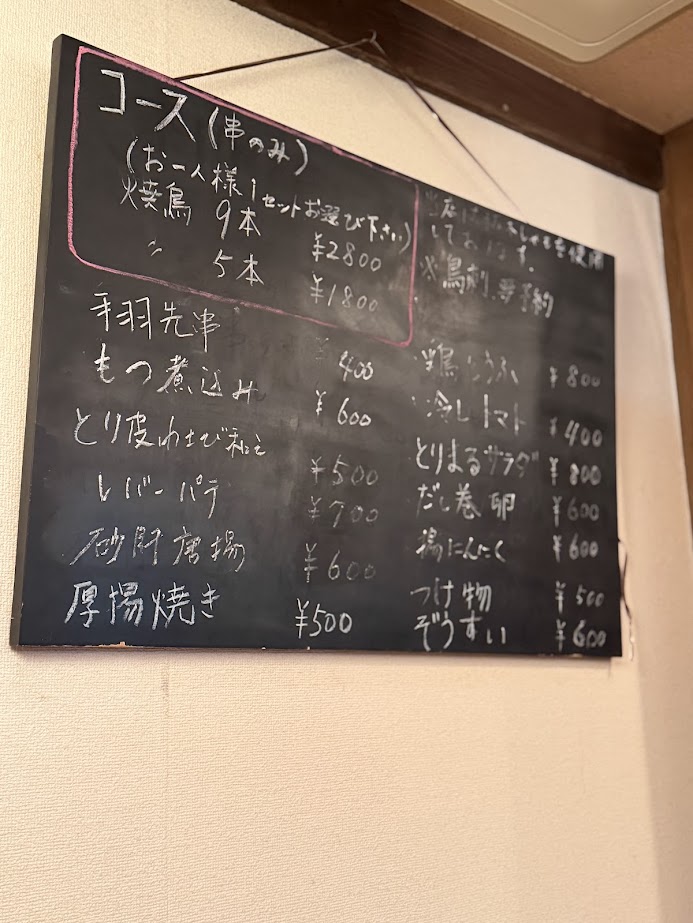 コース(串のみ)
(お一人様1セットお選び下さい)
焼鳥 9本 ¥2800
〃 5本 ¥1800
手羽先串 ¥400
もつ煮込み ¥600
とり皮わさび和え ¥500
レバーパテ ¥700
砂肝唐揚 ¥600
厚揚焼き ¥500
を使用
しております。
※鳥刺し要予約
鶏とうふ ¥800
冷しトマト ¥400
とりまるサラダ ¥800
だし巻卵 ¥600
揚にんにく ¥600
つけ物 ¥500
ぞうすい ¥600